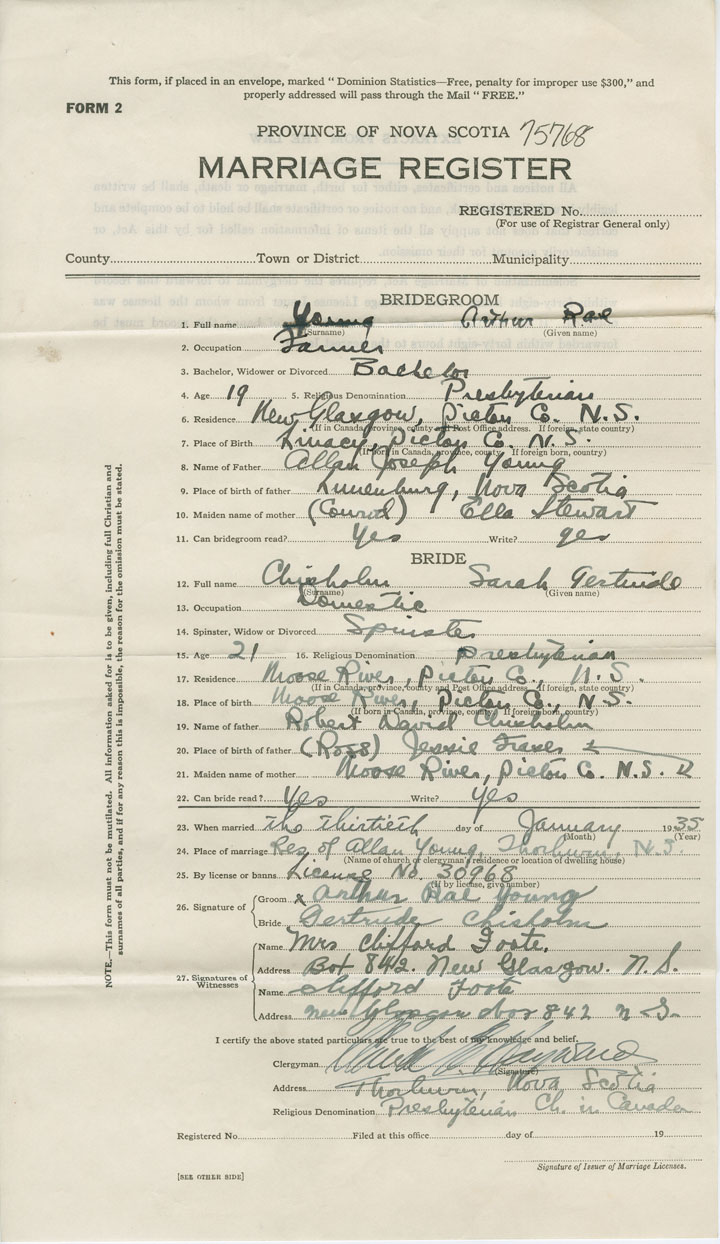 This form, if placed in an envelope, marked “ Dominion Statistics—Free, penalty for improper use $300,” and
properly addressed will pass through the Mail “ FREE.”
FORM 2
PROVINCE OF NOVA SCOTIA 75768
MARRIAGE REGISTER
REGISTERED No.
(For use of Registrar General only)
County Town or District Municipality
BRIDEGROOM
1. Full name Young Arthur Rae
(Surname) (Given name)
2. Occupation Farmer
3. Bachelor, Widower or Divorced Bachelor
4. Age 19 5. Religious Denomination Presbyterian
6. Residence New Glasgow, Pictou Co. N.S.
(If in Canada, province, county and Post Office address. If foreign, state country)
7. Place of Birth Linacy, Pictou Co. N.S.
(If born in Canada, province, county. If foreign born, country)
8. Name of Father Allan Joseph Young
9. Place of birth of father Lunenburg, Nova Scotia
10. Maiden name of mother (Conrod) Ella Stewart
11. Can bridegroom read? Yes Write? yes
BRIDE
12. Full name Chisholm Sarah Gertrude
(Surname) (Given name)
13. Occupation Domestic
14. Spinster, Widow or Divorced Spinster
15. Age 21 16. Religious Denomination Presbyterian
17. Residence Moose River, Pictou Co., N.S.
(If in Canada, province, county and Post Office address. If foreign, state country)
18. Place of birth Moose River, Pictou Co., N.S.
(If born in Canada, province, county. If foreign born, country)
19. Name of father Robert David Chisholm
20. Place of birth of father (Ross) Jessie Fraser
21. Maiden name of mother Moose River, Pictou Co. N.S.
22. Can bride read? Yes Write? Yes
23. When married the Thirtieth day of January 1935
(Month) (Year)
24. Place of marriage Res of Allan Young, Thorburn, N.S.
(Name of church or clergyman's residence or location of dwelling house)
25. By license or banns License No. 30968
(If by license, give number)
26. Signature of
Groom x Arthur Rae Young
Bride Gertrude Chisholm
27. Signatures of Witnesses
Name Mrs Clifford Foote.
Address Box 842. New Glasgow. N.S.
Name Clifford Foote
Address New Glasgow box 842 N S.
I certify the above stated particulars are true to the best of my knowledge and belief.
Clergyman
(Signature)
Address Thorburn, Nova Scotia
Religious Denomination Presbyterian Ch. in Canada
Registered No. Filed at this office day of 19
Signature of Issuer of Marriage Licenses.
[SEE OTHER SIDE]
NOTE.—This form must not be mutilated. All information asked for is to be given, including full Christian and
surnames of all parties, and if for any reason this is impossible, the reason for the omission must be stated.